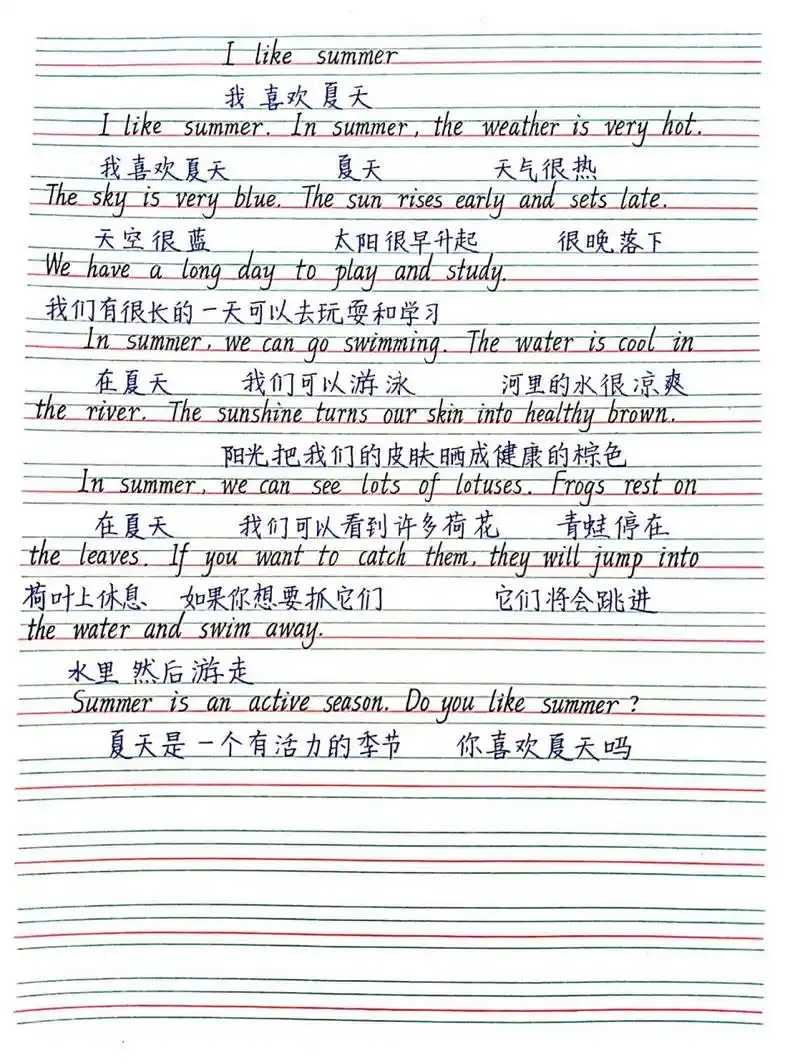 I like summer
我喜欢夏天
I like summer. In summer, the weather is very hot.
我喜欢夏天 夏天 天气很热
The sky is very blue. The sun rises early and sets late.
天空很蓝 太阳很早升起 很晚落下
We have a long day to play and study.
我们有很长的一天可以去玩耍和学习
In summer, we can go swimming. The water is cool in
在夏天 我们可以游泳 河里的水很凉爽
the river. The sunshine turns our skin into healthy brown.
阳光把我们的皮肤晒成健康的棕色
In summer, we can see lots of lotuses. Frogs rest on
在夏天 我们可以看到许多荷花 青蛙停在
the leaves. If you want to catch them, they will jump into
荷叶上休息 如果你想要抓它们 它们将会跳进
the water and swim away.
水里 然后游走
Summer is an active season. Do you like summer?
夏天是一个有活力的季节 你喜欢夏天吗